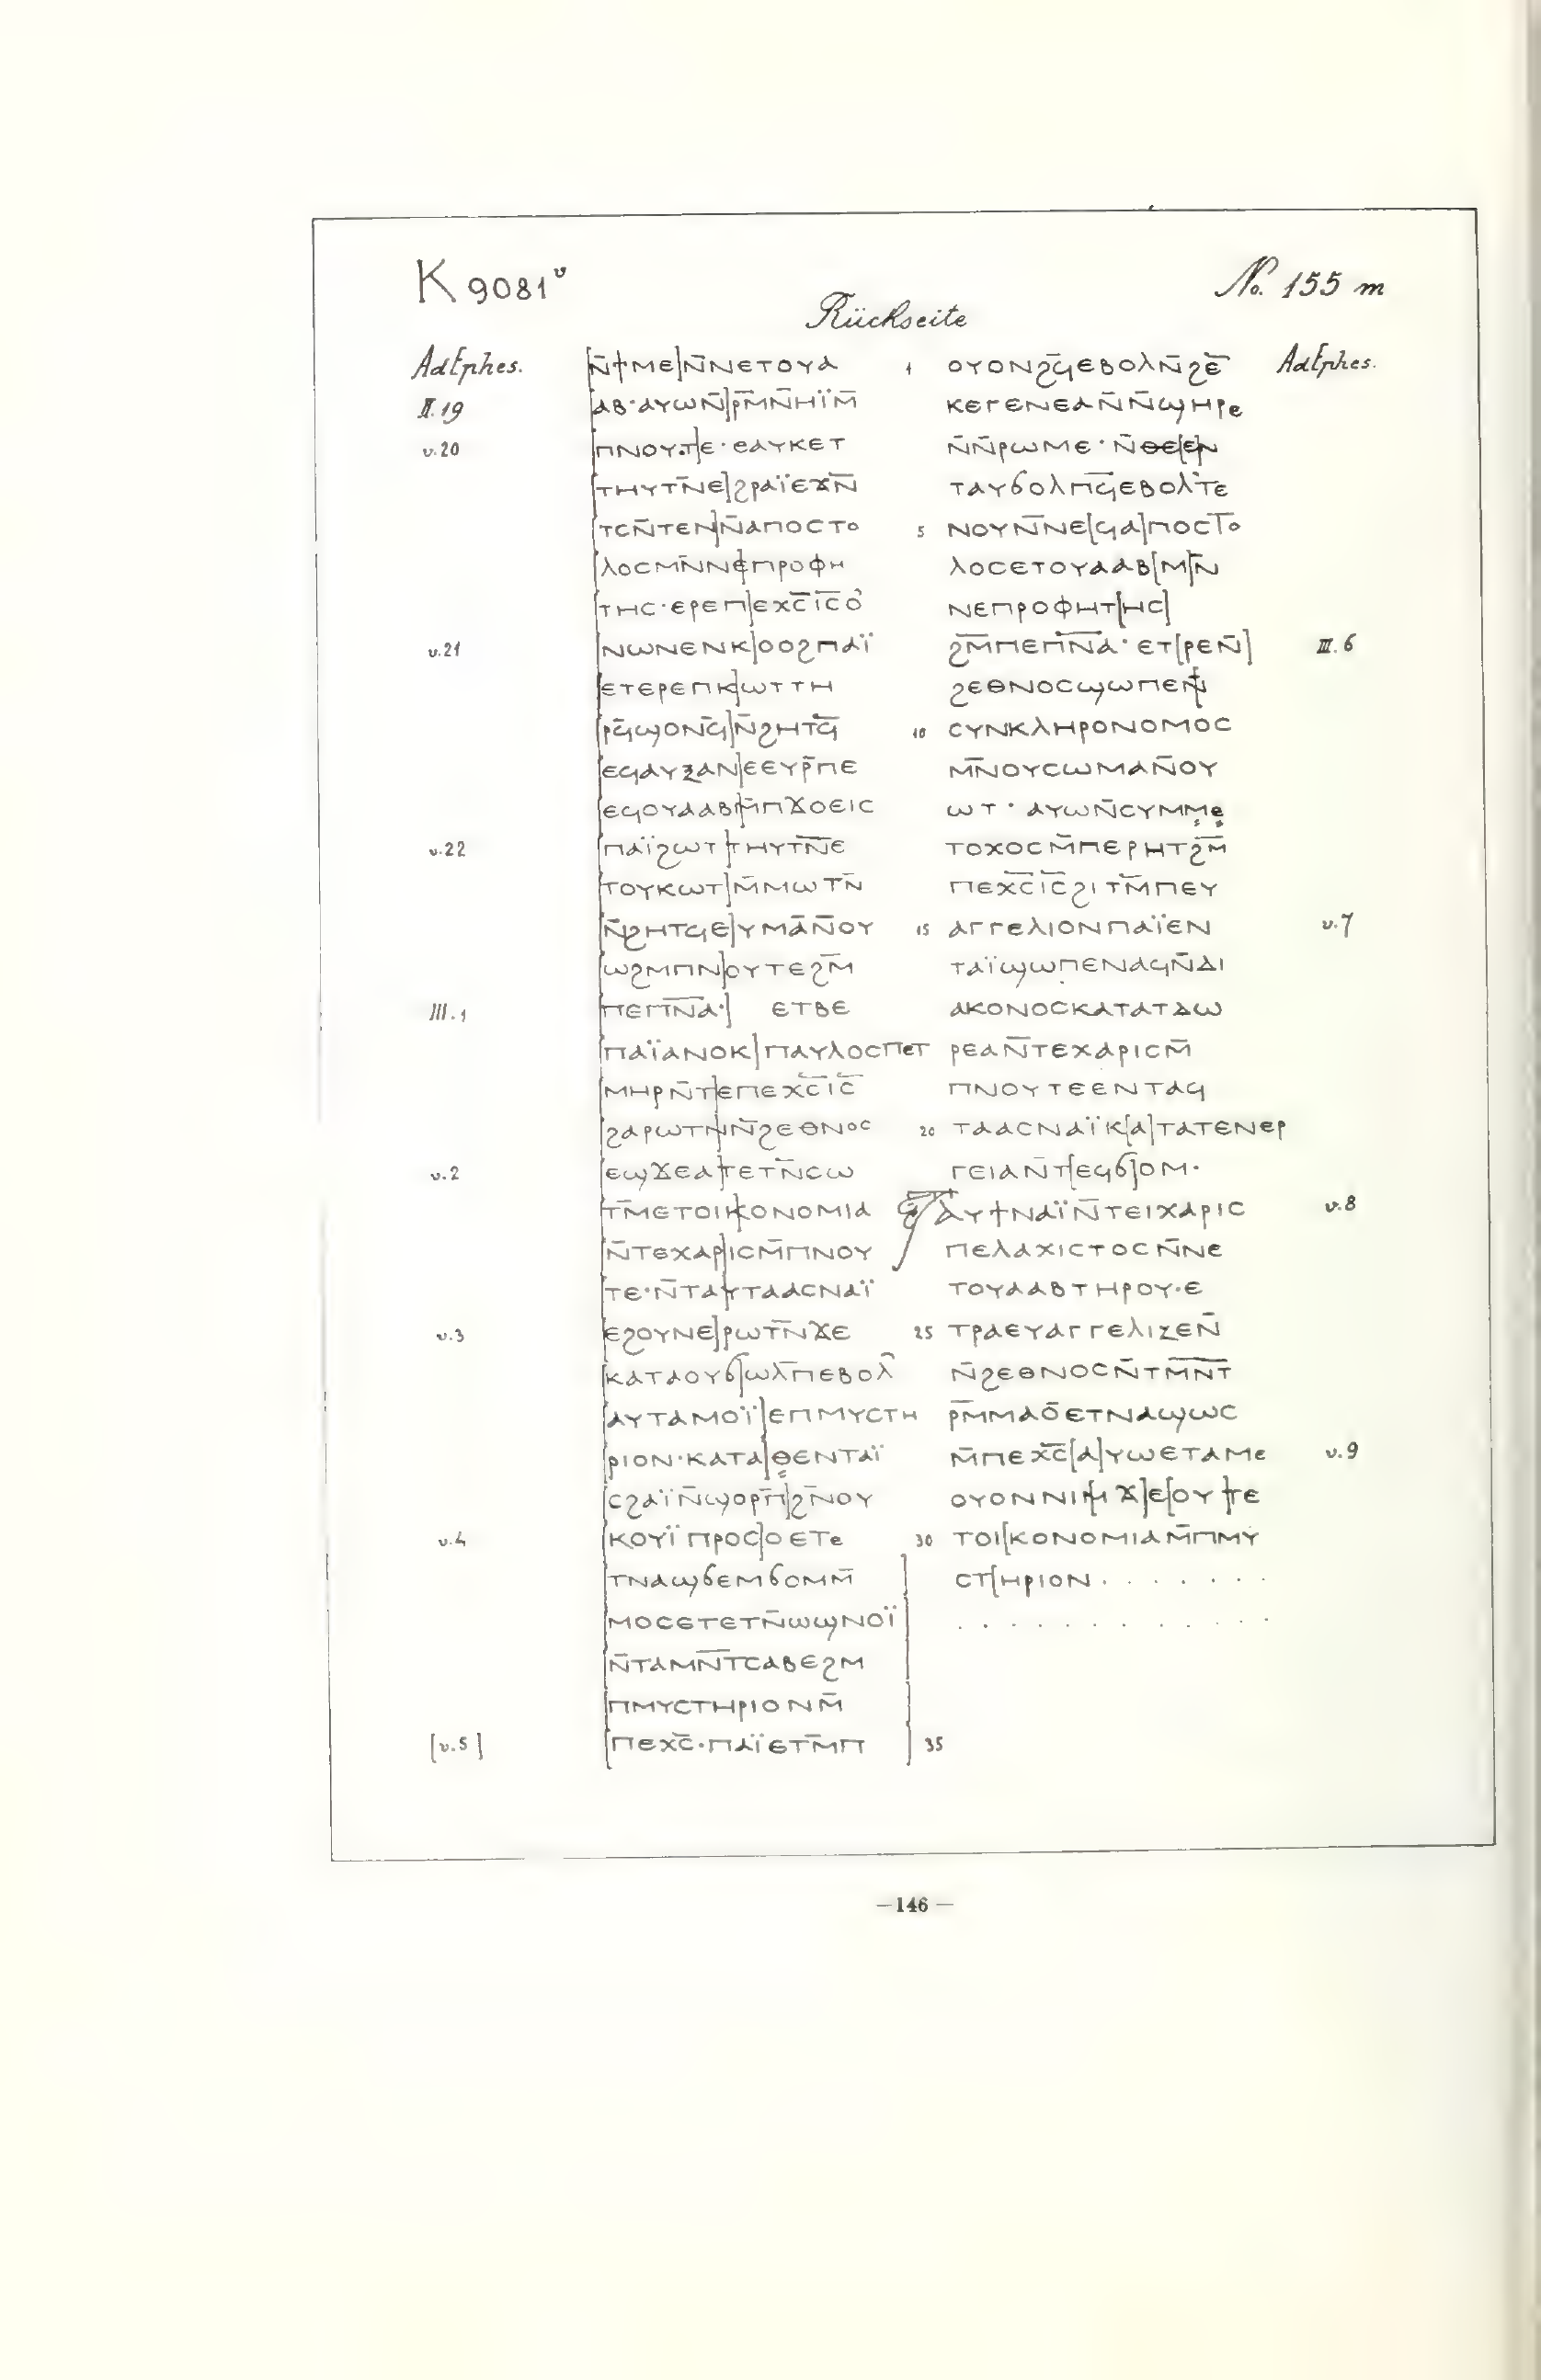 K 9081ᵛ
No. 155 m
Rückseite
Ad Ephes.
Ad Ephes.
[ⲛ̄ϯⲙⲉ]ⲛ̄ⲛⲉⲧⲟⲩⲁ
II.19
[ⲁⲃ·ⲁⲩⲱⲛ̄]ⲣⲙ̄ⲛ̄ⲏⲓ̈ⲙ̄
v.20
[ⲡⲛⲟⲩⲧ]ⲉ·ⲉⲁⲩⲕⲉⲧ
[ⲧⲏⲩⲧⲛ̄ⲉ]ϩⲣⲁⲓ̈ⲉϫⲛ̄
[ⲧⲥⲛ̄ⲧⲉⲛ]ⲛ̄ⲁⲡⲟⲥⲧⲟ
[ⲗⲟⲥⲙⲛ̄ⲛⲉ]ⲡⲣⲟⲫⲏ
[ⲧⲏⲥ·ⲉⲣⲉⲡ]ⲉⲭⲥ̄ⲓⲥ̄ⲟ̂
v.21
[ⲛⲱⲛⲉⲛⲕ]ⲟⲟϩⲡⲁⲓ̈
[ⲉⲧⲉⲣⲉⲡⲕ]ⲱⲧⲧⲏ
[ⲣϥ̄ϣⲟⲛϥ̄]ⲛ̄ϩⲏⲧϥ̄
[ⲉϥⲁⲩⲝⲁⲛ]ⲉⲉⲩⲣ̄ⲡⲉ
[ⲉϥⲟⲩⲁⲁⲃ]ⲙ̄ⲡϫⲟⲉⲓⲥ
v.22
[ⲡⲁⲓ̈ϩⲱⲧ]ⲧⲏⲩⲧⲛ̄ⲉ
[ⲧⲟⲩⲕⲱⲧ]ⲙ̄ⲙⲱⲧⲛ̄
[ⲛ̄ϩⲏⲧϥⲉ]ⲩⲙⲁ̄ⲛ̄ⲟⲩ
[ⲱϩⲙⲡⲛ]ⲟⲩⲧⲉϩⲙ̄
III.1
[ⲡⲉⲡⲛ̄ⲁ̄·] ⲉⲧⲃⲉ
[ⲡⲁⲓ̈ⲁⲛⲟⲕ]ⲡⲁⲩⲗⲟⲥⲡⲉⲧ
[ⲙⲏⲣⲛ̄ⲧ]ⲉⲡⲉⲭⲥ̄ⲓⲥ̄
[ϩⲁⲣⲱⲧⲛ]ⲛ̄ϩⲉⲑⲛⲟⲥ
v.2
[ⲉϣϫⲉⲁ]ⲧⲉⲧⲛ̄ⲥⲱ
[ⲧⲙ̄ⲉⲧⲟⲓⲕ]ⲟⲛⲟⲙⲓⲁ
[ⲛ̄ⲧⲉⲭⲁⲣ]ⲓⲥⲙ̄ⲡⲛⲟⲩ
[ⲧⲉ·ⲛ̄ⲧⲁⲩ]ⲧⲁⲁⲥⲛⲁⲓ̈
v.3
[ⲉϩⲟⲩⲛⲉ]ⲣⲱⲧⲛ̄ϫⲉ
[ⲕⲁⲧⲁⲟⲩϭ]ⲱⲗⲡ̄ⲉⲃⲟⲗ̂
[ⲁⲩⲧⲁⲙⲟⲓ̈]ⲉⲡⲙⲩⲥⲧⲏ
[ⲣⲓⲟⲛ·ⲕⲁⲧⲁ]ⲑⲉⲛⲧⲁⲓ̈
[ⲥϩⲁⲓ̈ⲛ̄ϣⲟⲣⲡ̄]ϩⲛ̄ⲟⲩ
v.4
[ⲕⲟⲩⲓ̈ⲡⲣⲟⲥ]ⲟⲉⲧⲉ
[ⲧⲛⲁϣϭⲉⲙϭⲟⲙⲙ̄]
[ⲙⲟⲥⲉⲧⲉⲧⲛ̄ⲱϣⲛⲟⲓ̈]
[ⲛ̄ⲧⲁⲙⲛ̄ⲧⲥⲁⲃⲉϩⲙ]
[ⲡⲙⲩⲥⲧⲏⲣⲓⲟⲛⲙ̄]
[v.5]
[ⲡⲉⲭⲥ̄·ⲡⲁⲓ̈ⲉⲧⲙ̄ⲡ] 35
1 ⲟⲩⲟⲛϩϥ̄ⲉⲃⲟⲗⲛ̄ϩⲉ̄
ⲕⲉⲅⲉⲛⲉⲁⲛ̄ⲛ̄ϣⲏⲣⲉ
ⲛ̄ⲛ̄ⲣⲱⲙⲉ·ⲛ̄ⲑⲉ[ⲉⲛ
ⲧⲁⲩϭⲟⲗⲡϥ̄ⲉⲃⲟⲗ̂ⲧⲉ
5 ⲛⲟⲩⲛ̄ⲛⲉ[ϥⲁ]ⲡⲟⲥⲧⲟ
ⲗⲟⲥⲉⲧⲟⲩⲁⲁⲃ[ⲙ]ⲛ̄
ⲛⲉⲡⲣⲟⲫⲏⲧ[ⲏⲥ]
ϩⲙ̄ⲡⲉⲡⲛ̄ⲁ̄·ⲉⲧ[ⲣⲉⲛ̄]
III.6
ϩⲉⲑⲛⲟⲥϣⲱⲡⲉⲛ̣
10 ⲥⲩⲛⲕⲗⲏⲣⲟⲛⲟⲙⲟⲥ
ⲙⲛ̄ⲟⲩⲥⲱⲙⲁⲛ̄ⲟⲩ
ⲱⲧ·ⲁⲩⲱⲛ̄ⲥⲩⲙⲙ̣ⲉ̣
ⲧⲟⲭⲟⲥⲙ̄ⲡⲉⲣⲏⲧϩⲙ̄
ⲡⲉⲭⲥ̄ⲓⲥ̄ϩⲓⲧⲙ̄ⲡⲉⲩ
15 ⲁⲅⲅⲉⲗⲓⲟⲛⲡⲁⲓ̈ⲉⲛ
v.7
ⲧⲁⲓ̈ϣⲱⲡⲉⲛⲁϥⲛ̄ⲇⲓ
ⲁⲕⲟⲛⲟⲥⲕⲁⲧⲁⲧⲇⲱ
ⲣⲉⲁⲛ̄ⲧⲉⲭⲁⲣⲓⲥⲙ̄
ⲡⲛⲟⲩⲧⲉⲉⲛⲧⲁϥ
20 ⲧⲁⲁⲥⲛⲁⲓ̈ⲕ[ⲁ]ⲧⲁⲧⲉⲛⲉⲣ
ⲅⲉⲓⲁⲛ̄ⲧ[ⲉϥϭ]ⲟⲙ·
ⲁⲩϯⲛⲁⲓ̈ⲛ̄ⲧⲉⲓⲭⲁⲣⲓⲥ
v.8
ⲡⲉⲗⲁⲭⲓⲥⲧⲟⲥⲛ̄ⲛⲉ
ⲧⲟⲩⲁⲁⲃⲧⲏⲣⲟⲩ·ⲉ
25 ⲧⲣⲁⲉⲩⲁⲅⲅⲉⲗⲓⲍⲉⲛ̄
ⲛ̄ϩⲉⲑⲛⲟⲥⲛ̄ⲧⲙⲛ̄ⲧ
ⲣⲙ̄ⲙⲁⲟ̄ⲉⲧⲛⲁϣⲱⲥ
ⲙ̄ⲡⲉⲭⲥ̄[ⲁ]ⲩⲱⲉⲧⲁⲙⲉ
v.9
ⲟⲩⲟⲛⲛⲓⲙ[ϫ]ⲉ[ⲟⲩ]ⲧⲉ
30 ⲧⲟⲓ[ⲕⲟⲛⲟⲙⲓⲁⲙ̄ⲡⲙⲩ
ⲥⲧ[ⲏⲣⲓⲟⲛ.......
............
—146—